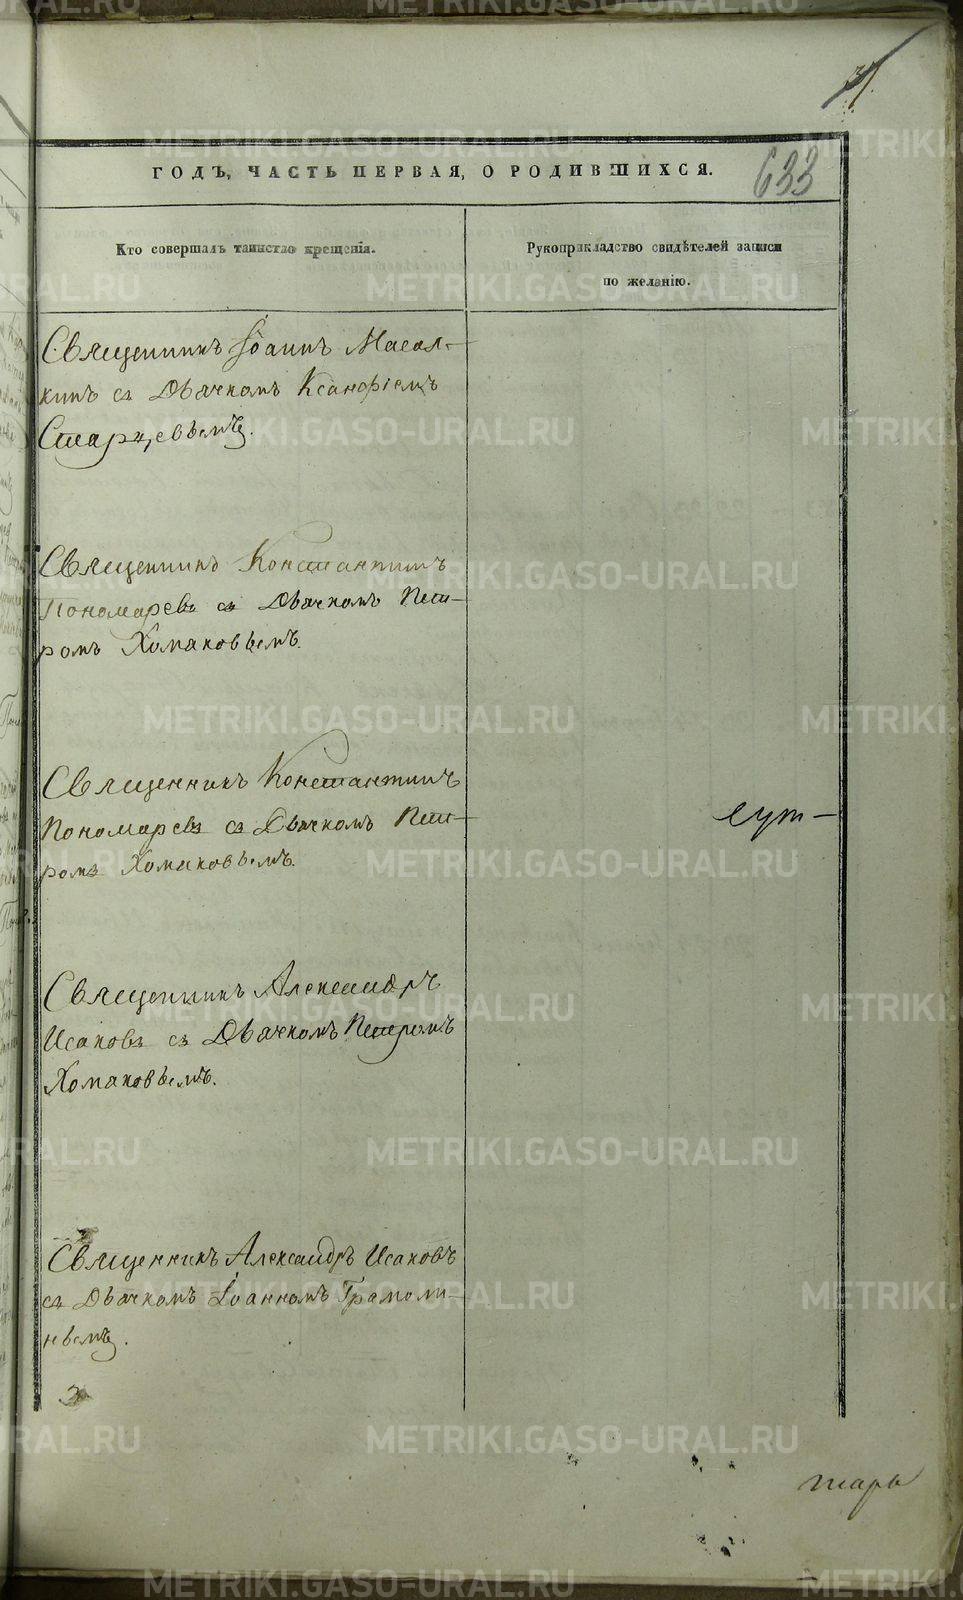 37.
633
ГОДЪ, ЧАСТЬ ПЕРВАЯ, О РОДИВШИХСЯ.
Кто совершалъ таинство крещенія.
Рукоприкладство свидѣтелей записи
по желанію.
Священникъ Іоаннъ Масал-
кинъ съ Дьячкомъ Ксанфіемъ
Старцевымъ.
Священникъ Константинъ
Пономаревъ съ Дьячкомъ Пет-
ромъ Хомяковымъ.
Священникъ Константинъ
Пономаревъ съ Дьячкомъ Пет-
ромъ Хомяковымъ.
Священникъ Александръ
Исаковъ съ Дьячкомъ Петромъ
Хомяковымъ.
Священникъ Александръ Исаковъ
съ Дьячкомъ Іоанномъ Грамоли-
нымъ.
тарь
METRIKI.GASO-URAL.RU